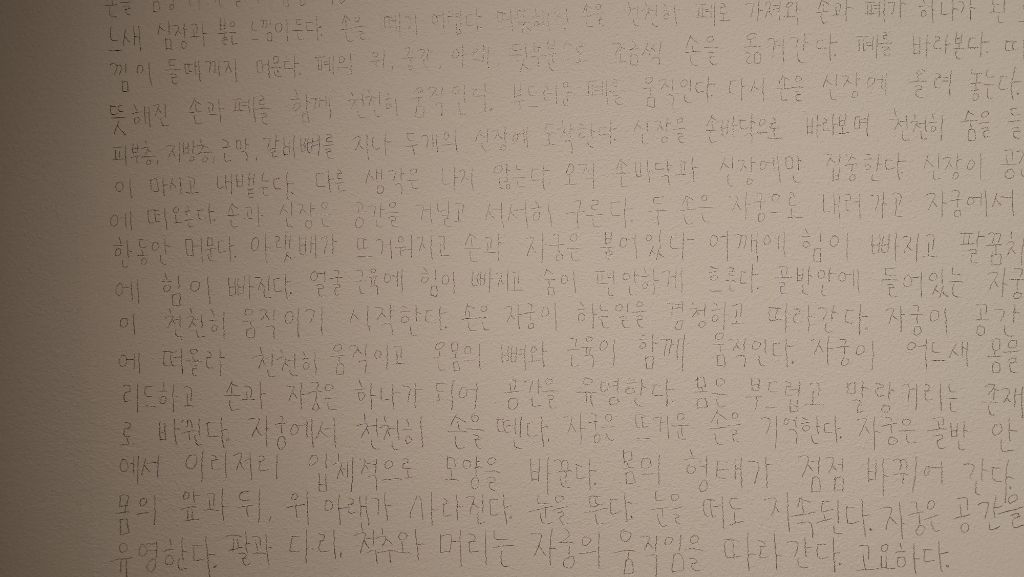 느새 심장과 붙은 느낌이든다. 손을 떼기 어렵다. 따뜻해진 손을 천천히 폐로 가져와 손과 폐가 하나가 된
낌이 들때까지 머문다. 폐의 위, 중간, 아래, 뒷부분으로 조금씩 손을 옮겨간다. 폐를 바라본다. 따
뜻해진 손과 폐를 함께 천천히 움직인다. 부드러운 폐를 움직인다. 다시 손을 신장에 올려 놓는다.
피부층, 지방층, 근막, 갈비뼈를 지나 두개의 신장에 도착한다. 신장을 손바닥으로 바라보며 천천히 숨을 들
이 마시고 내뱉는다. 다른 생각은 나지 않는다. 오직 손바닥과 신장에만 집중한다. 신장이 공간
에 떠오른다. 손과 신장은 공간을 거닐고 서서히 구른다. 두 손은 자궁으로 내려가고 자궁에서
한동안 머문다. 아랫배가 뜨거워지고 손과 자궁은 붙어있다. 어깨에 힘이 빠지고 팔꿈치
에 힘이 빠진다. 얼굴 근육에 힘이 빠지고 숨이 편안하게 흐른다. 골반안에 들어있는 자궁
이 천천히 움직이기 시작한다. 손은 자궁이 하는일을 경청하고 따라간다. 자궁이 공간
에 떠올라 천천히 움직이고 온몸의 뼈와 근육이 함께 움직인다. 자궁이 어느새 몸을
리드하고 손과 자궁은 하나가 되어 공간을 유영한다. 몸은 부드럽고 말랑거리는 존재
로 바뀐다. 자궁에서 천천히 손을 뗀다. 자궁은 뜨거운 손을 기억한다. 자궁은 골반 안
에서 이리저리 입체적으로 모양을 바꾼다. 몸의 형태가 점점 바뀌어 간다.
몸의 앞과 뒤, 위 아래가 사라진다. 눈을 뜬다. 눈을 떠도 지속된다. 자궁은 공간을
유영한다. 팔과 다리, 척추와 머리는 자궁의 움직임을 따라간다. 고요하다.